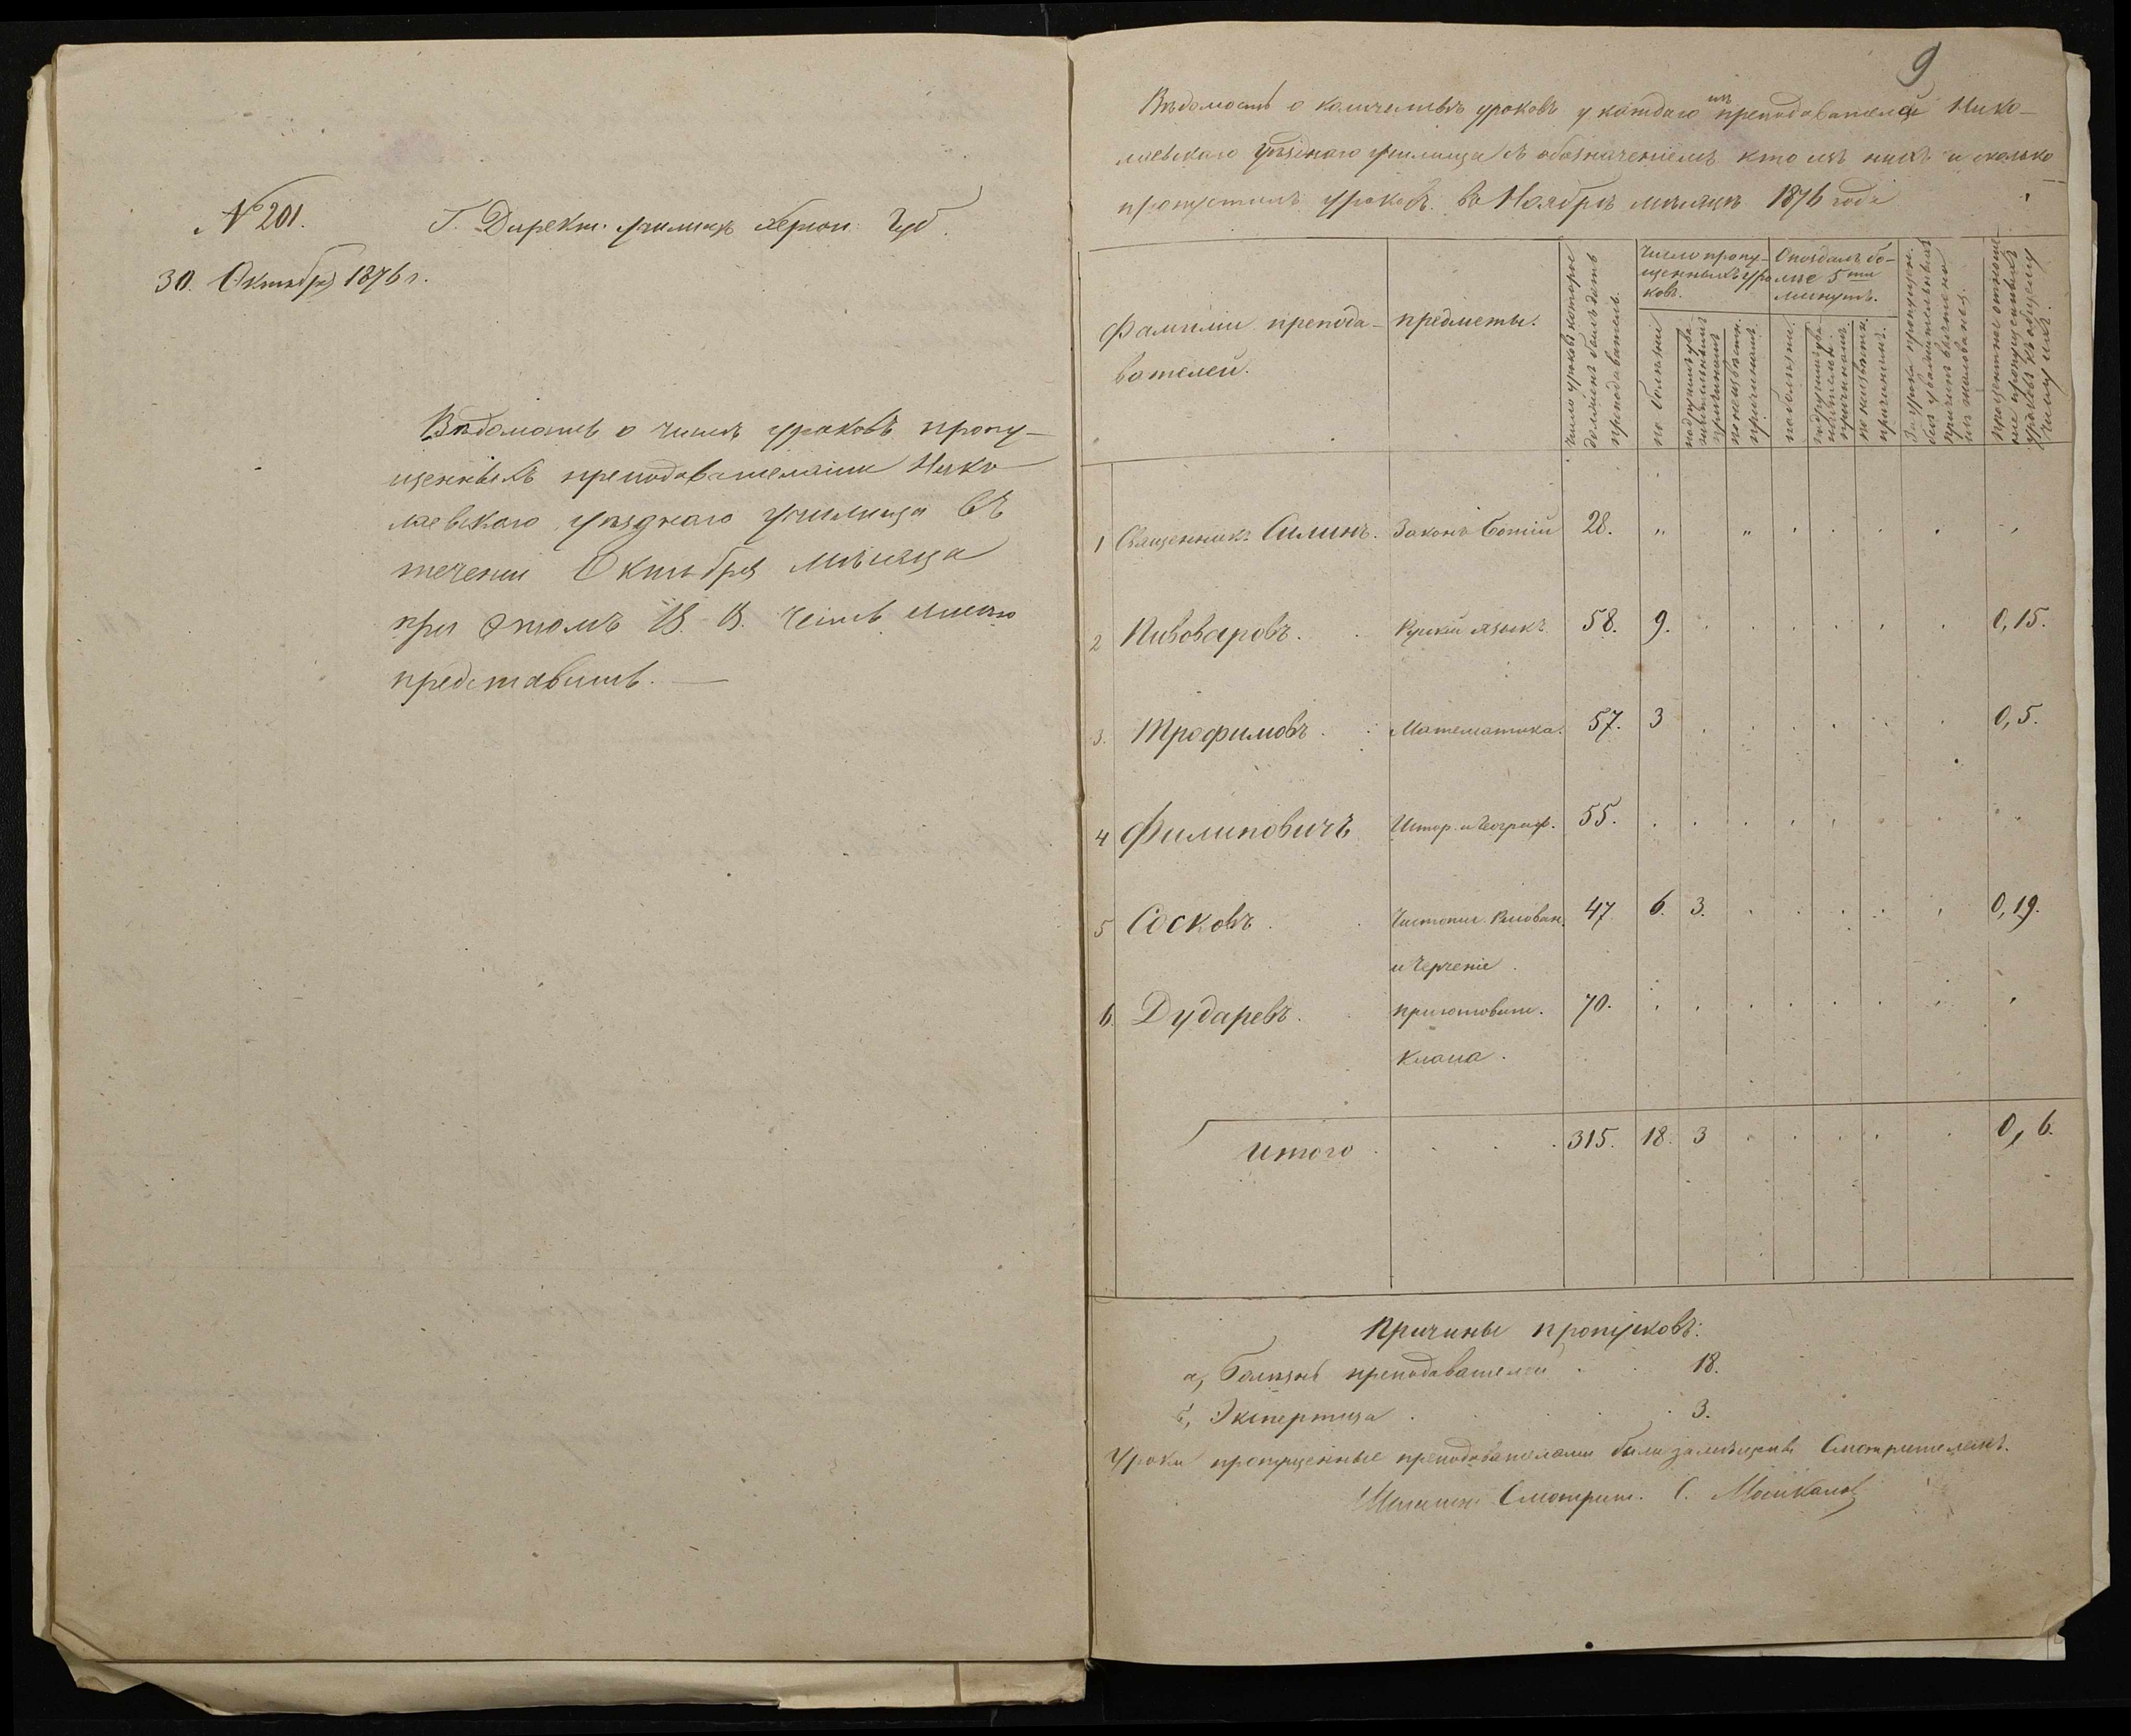 № 201.
30. Октября 1876 г.
Г. Директ. училищъ Херсон. Губ.
Вѣдомость о числѣ уроковъ пропу-
щенныхъ преподавателями Нико-
лаевскаго уѣзднаго училища въ
теченіи Октября мѣсяца
при этомъ В. В. честь имѣю
представить. —
9
Вѣдомость о количествѣ уроковъ у каждаго изъ преподавателей Нико-
лаевскаго уѣзднаго училища съ обозначеніемъ кто изъ нихъ и сколько
пропустилъ уроковъ въ Ноябрѣ мѣсяцѣ 1876 года
Фамиліи препода-
вателей.
предметы.
Число уроковъ которые
долженъ былъ дать
преподаватель.
Число пропу-
щенныхъ уро-
ковъ.
Опоздалъ бо-
лѣе 5ти
минутъ.
по болѣзни
по другимъ ува
жительнымъ
причинамъ
по неизвѣстн.
причинамъ.
по болѣзни.
по другимъ ува
жительн.
причинамъ.
по неизвѣстн.
причинамъ.
За уроки пропущен.
безъ уважительныхъ
причинъ вычтено
изъ жалованья.
Процентное отноше-
ніе пропущенныхъ
уроковъ къ общему
числу ихъ.
1 Священникъ Силинъ. Законъ Божій 28. „ „
2 Пивоваровъ. Рускій языкъ 58. 9. 0,15.
3. Трофимовъ. Математика. 57. 3 0,5.
4 Филиповичъ Истор. и Географ. 55.
5 Сосковъ. Чистопис. Рисован. 47. 6. 3. 0,19.
и Черченіе.
6. Дударевъ. приготовит. 70.
класса.
Итого 315. 18. 3 0,6.
Причины пропусковъ:
а, Болѣзнь преподавателей 18.
б, Экспертиза 3.
Уроки пропущенные преподавателями были замѣщены Смотрителемъ.
Штатн. Смотрит. С.